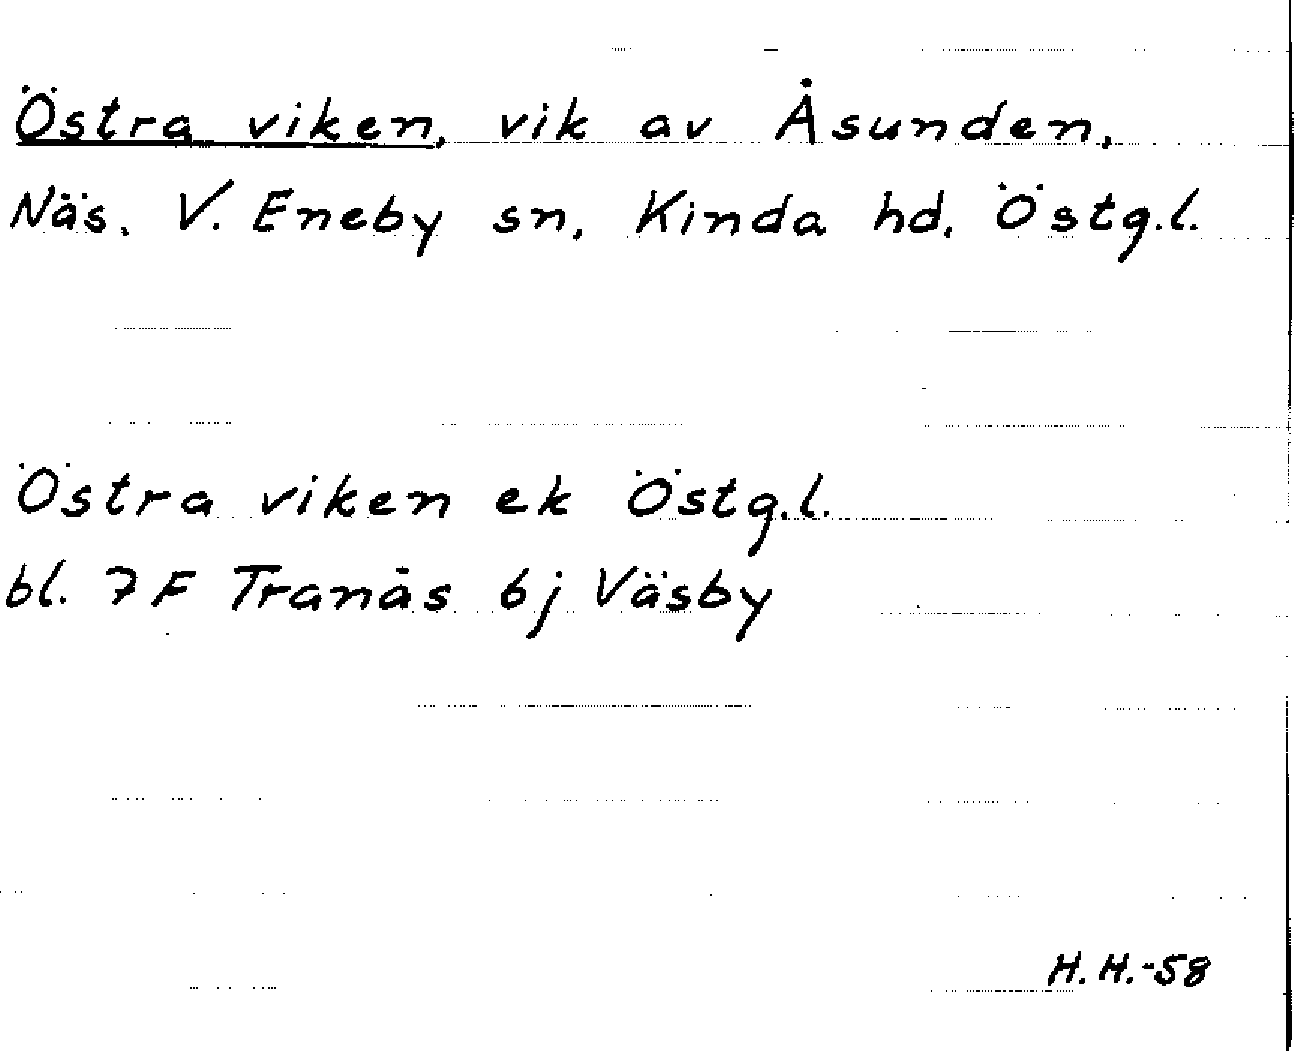 Östra viken, vik av Åsunden,
Näs. V. Eneby sn, Kinda hd, Östg.l.
Östra viken ek Östg.l.
bl. 7F Tranås 6j Väsby
H.H.-58